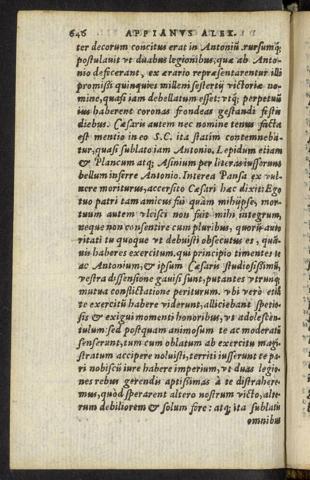 646 APPIANVS ALEX.
ter decorum concitus erat in Antoniũ. rursumq́;
postulauit vt duabus legionibus, quæ ab Anto-
nio defecerant, ex ærario repræsentarentur illi
promissi quinquies milleni sestertij victoriæ no-
mine, quasi iam debellatum esset: vtq; perpetuũ
ius haberent coronas frondeas gestandi festis
diebus. Cæsaris autem nec nomine tenus facta
est mentio in eo S. C. ita statim contemneba-
tur, quasi sublato iam Antonio. Lepidum etiam
& Plancum atq; Asinium per literas iusserunt
bellum inferre Antonio. Interea Pansa ex vul-
nere moriturus, accersito Cæsari hæc dixit: Ego
tuo patri tam amicus fui quàm mihijpse, mor-
tuum autem vlcisci non fuit mihi integrum,
neque non consentire cum pluribus, quorũ au-
ritati tu quoque vt debuisti obsecutus es, quã-
uis haberes exercitum. qui principio timentes te
ac Antonium, & ipsum Cæsaris studiosissimũ,
vestra dissensione gauisi sunt, putantes vtrunq;
mutua conflictatione periturum. vbi verò etiã
te exercitũ habere viderunt, alliciebant specio-
sis & exigui momenti honoribus, vt adolescen-
tulum: sed postquam animosum te ac moderatũ
senserunt, tum cum oblatum ab exercitu magi-
stratum accipere noluisti, territi iusserunt te pa-
ri nobiscũ iure habere imperium, vt duas legio-
nes rebus gerendis aptissimas à te distrahere-
mus, quòd sperarent altero nostrum victo, alte-
rum debiliorem & solum fore: atq; ita sublatis
omnibus